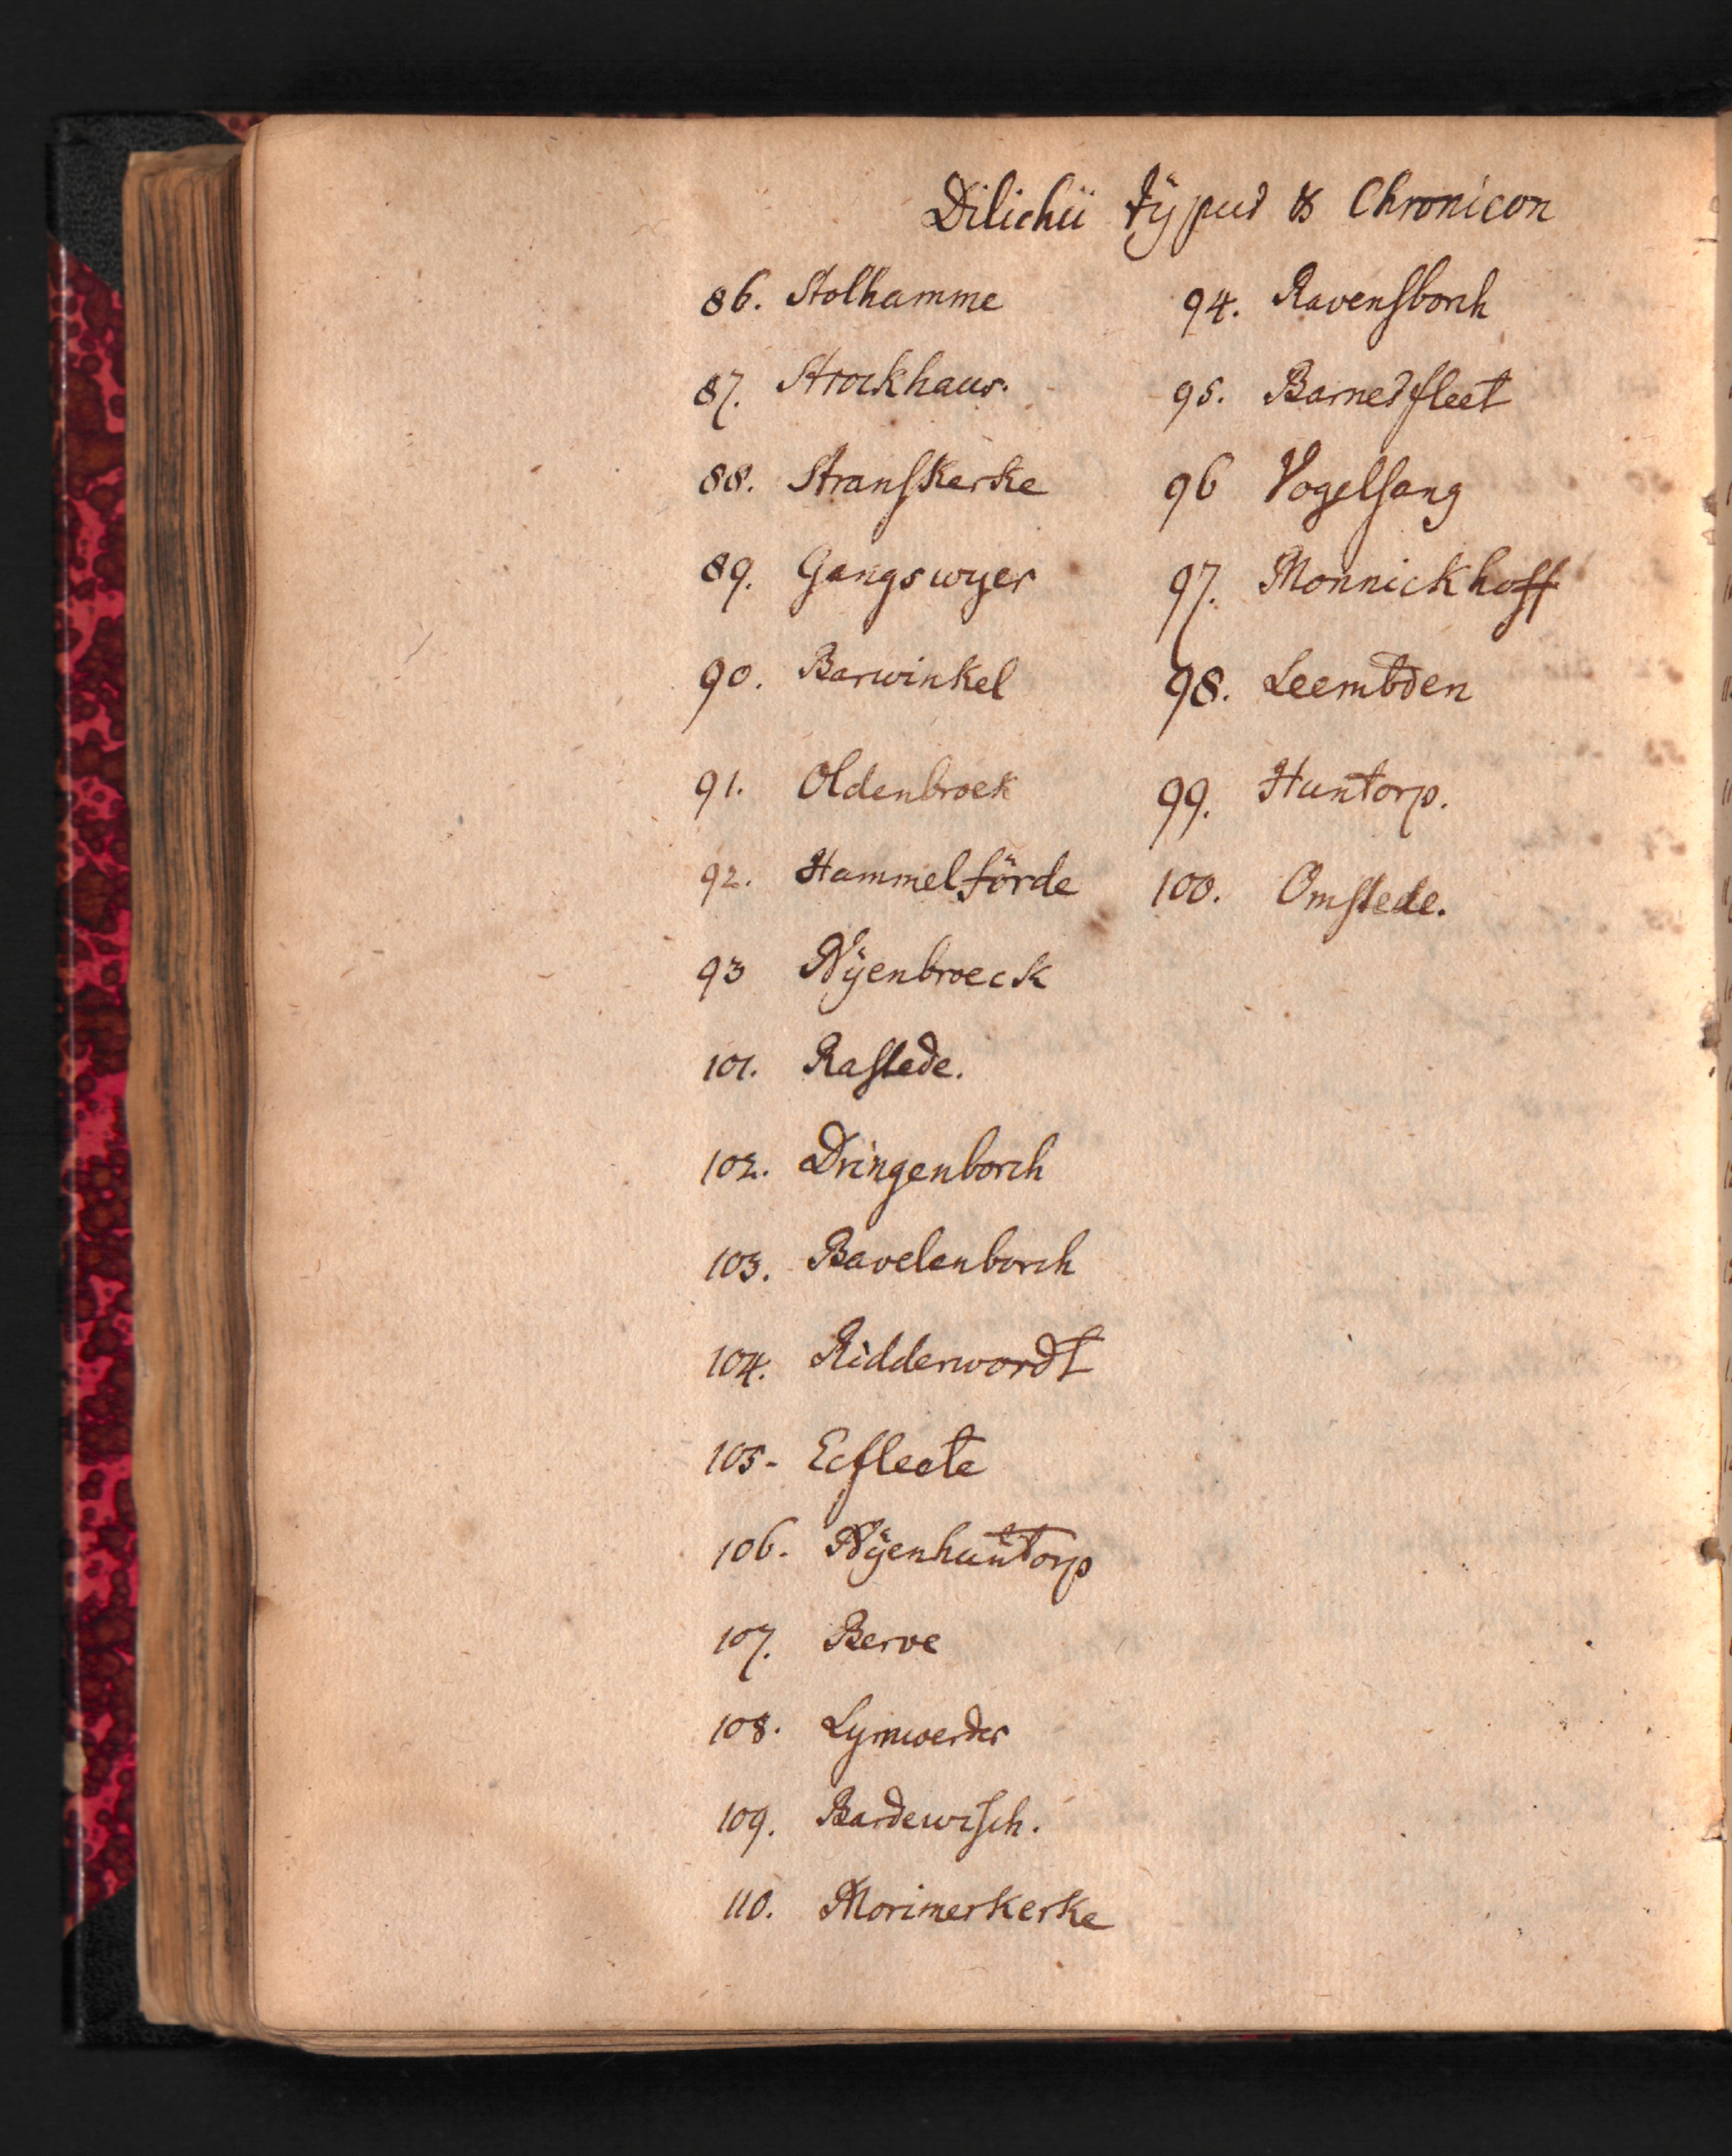 Dilichii tÿpus & Chronicon
86. Stolhamme
87. Strockhaus.
88. Stranskerke
89. Gangswyer
90. Barwinkel
91. Oldenbroek
92. Hammelförde
93 Nÿenbroeck
94. Ravensborch
95. Barnesfleet
96 Vogelsang
97. Monnickhoff
98. Leembden
99. Huntorp.
100. Omstede.
101. Rastede.
102. Dringenborch
103. Bavelenborch
104. Ridderwordt
105- Ecfleete
106. Nÿenhuntorp
107. Berve
108. Lymwerder
109. Bardewisch.
110. Morimerkerke